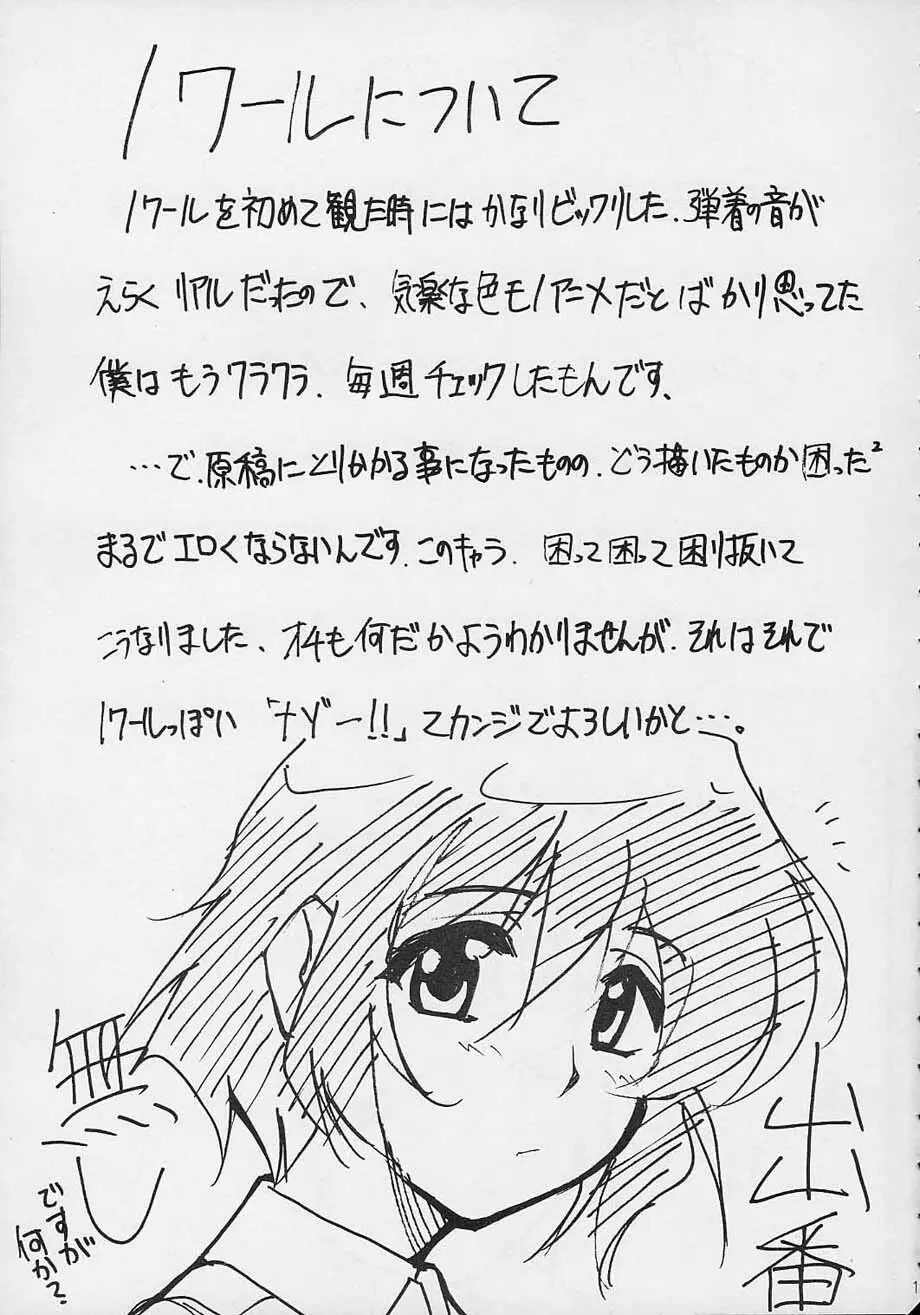 ノワールについて
ノワールを初めて観た時にはかなりビックリした、弾着の音が
えらくリアルだったので、気楽な色モノアニメだとばかり思ってた
僕はもうクラクラ、毎週チェックしたもんです、
…で、原稿にとりかかる事になったものの、どう描いたものか困った²
まるでエロくならないんです、このキャラ、困って困って困り抜いて
こうなりました、オチも何だかようわかりませんが、それはそれで
ノワールっぽい「ナゾー!!」てカンジでよろしいかと…。
出番
無し
ですが
何か?